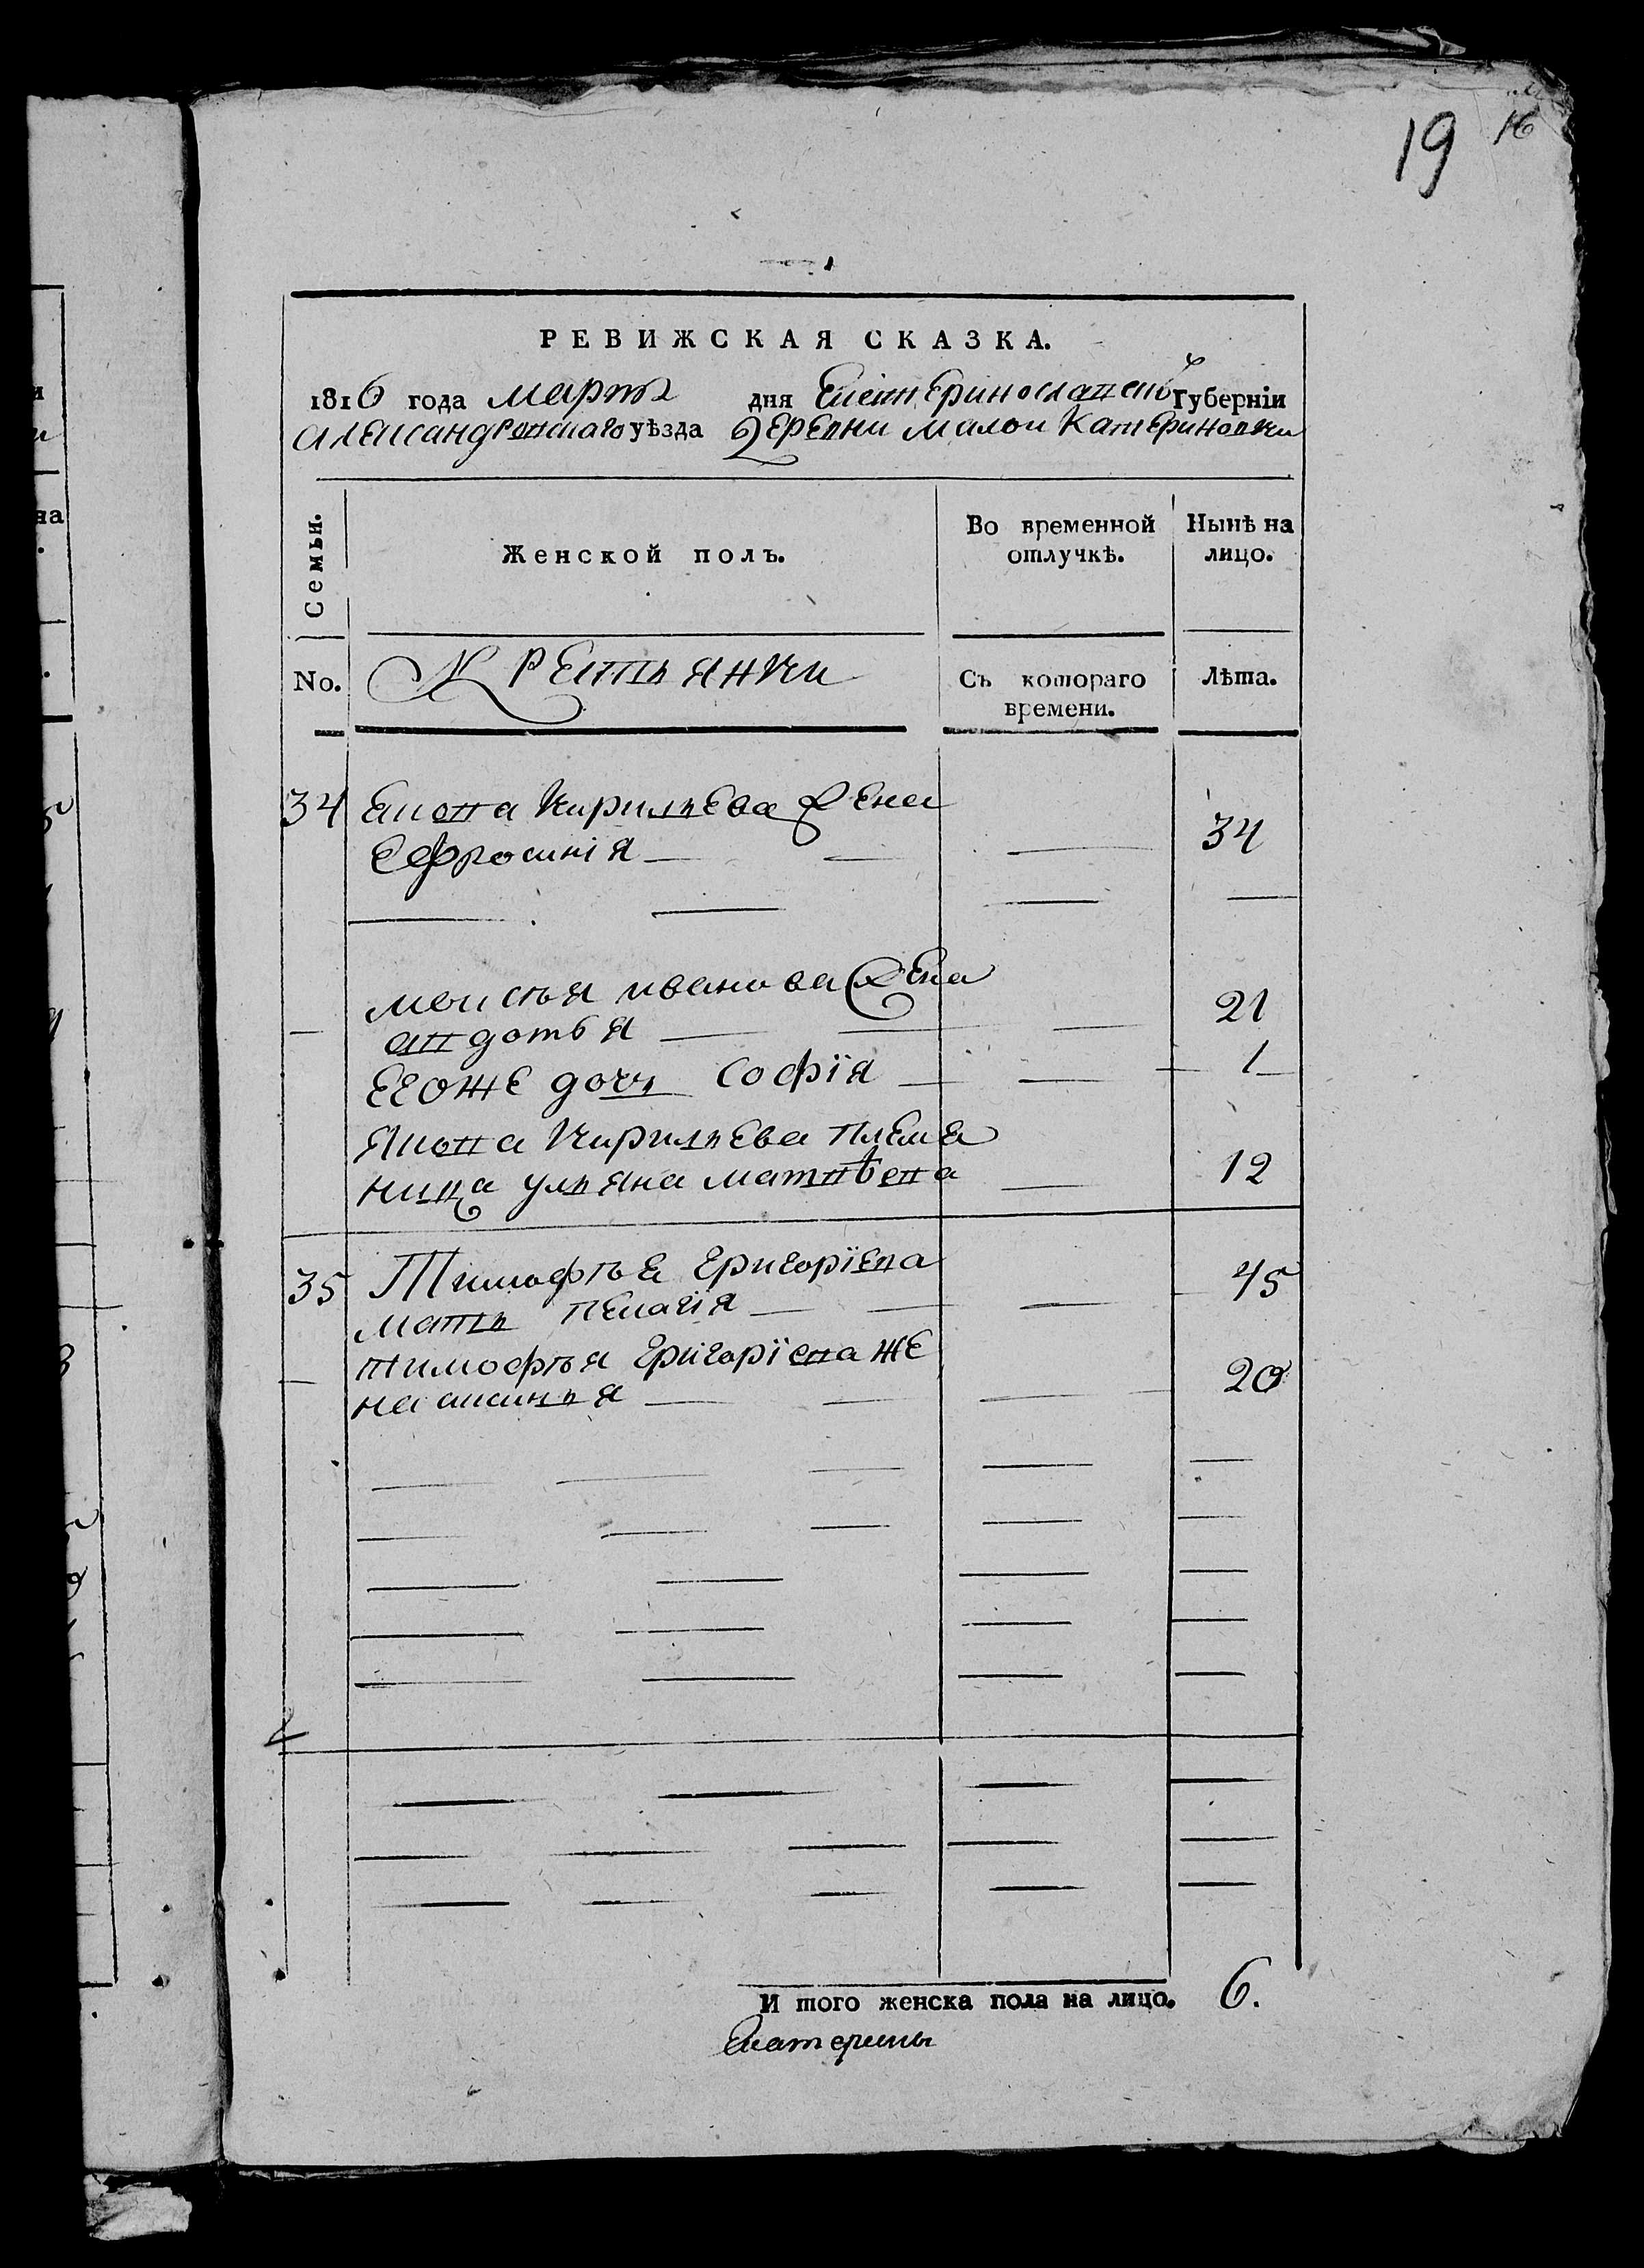 19 16
РЕВИЖСКАЯ СКАЗКА.
1816 года мартъ дня Екатеринославской Губерніи
александровскаго уѣзда деревни малои Катериновки
Семьи. Женской полъ. Во временной отлучкѣ. Нынѣ на лицо.
No. Крестьянки Съ котораго времени. Лѣта.
34 Якова Кирильева жена
Ефросинія 34
моисѣя иванова жена
авдотья 21
его же дочь софїя 1
Якова Кирильева племе
ница ульяна матвѣева 12
35 Тимофѣя григорїева
мать пелагїя 45
тимофѣя григорїева же
на аксинья 20
И того женска пола на лицо. 6.